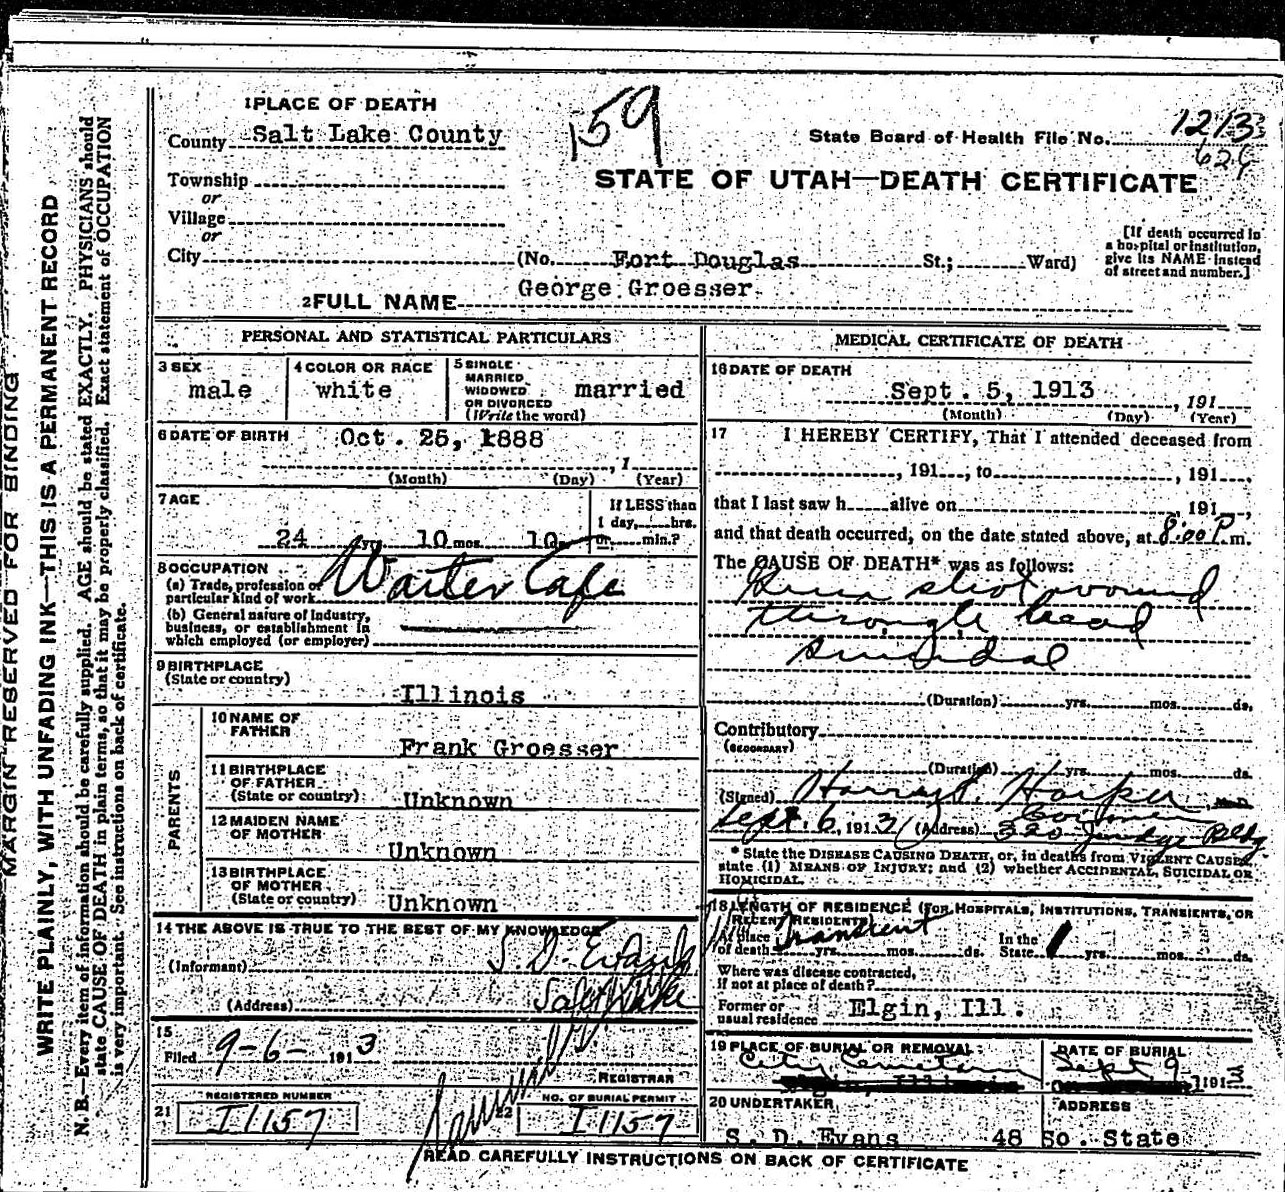 1 PLACE OF DEATH
County Salt Lake County
Township
or
Village
or
City (No. Fort Douglas St.; Ward)
159
State Board of Health File No. 1213
629
STATE OF UTAH—DEATH CERTIFICATE
[If death occurred in
a hospital or institution,
give its NAME instead
of street and number.]
2 FULL NAME George Groesser
PERSONAL AND STATISTICAL PARTICULARS
3 SEX male
4 COLOR OR RACE white
5 SINGLE
MARRIED
WIDOWED
OR DIVORCED
(Write the word) married
6 DATE OF BIRTH Oct. 25, 1888
, 1
(Month) (Day) (Year)
7 AGE
24 yrs 10 mos. 10
If LESS than
1 day, hrs.
or min.?
8 OCCUPATION
(a) Trade, profession or
particular kind of work Waiter Cafe
(b) General nature of industry,
business, or establishment in
which employed (or employer)
9 BIRTHPLACE
(State or country)
Illinois
PARENTS
10 NAME OF
FATHER
Frank Groesser
11 BIRTHPLACE
OF FATHER
(State or country) Unknown
12 MAIDEN NAME
OF MOTHER
Unknown
13 BIRTHPLACE
OF MOTHER
(State or country) Unknown
14 THE ABOVE IS TRUE TO THE BEST OF MY KNOWLEDGE
(Informant) S. D. Evans
(Address) Salt Lake
15
Filed 9-6- 1913
REGISTRAR
REGISTERED NUMBER
21 I1157
NO. OF BURIAL PERMIT
22 I1157
MEDICAL CERTIFICATE OF DEATH
16 DATE OF DEATH
Sept. 5, 1913 , 191
(Month) (Day) (Year)
17 I HEREBY CERTIFY, That I attended deceased from
, 191 , to , 191 ,
that I last saw h alive on , 191 ,
and that death occurred, on the date stated above, at 8:00 P. m.
The CAUSE OF DEATH* was as follows:
Gun shot wound
through head
suicidal
(Duration) yrs. mos. ds.
Contributory
(SECONDARY)
(Duration) yrs. mos. ds.
(Signed) Harry S. Harper M. D.
Coroner
Sept. 6, 1913 (Address) 320 Judge Bldg
* State the DISEASE CAUSING DEATH, or, in deaths from VIOLENT CAUSES,
state (1) MEANS OF INJURY; and (2) whether ACCIDENTAL, SUICIDAL OR
HOMICIDAL.
18 LENGTH OF RESIDENCE (FOR HOSPITALS, INSTITUTIONS, TRANSIENTS, OR
RECENT RESIDENTS)
At place
of death Transient yrs. mos. ds. In the
State 1 yrs. mos. ds.
Where was disease contracted,
if not at place of death?
Former or
usual residence Elgin, Ill.
19 PLACE OF BURIAL OR REMOVAL
City Cemetery
DATE OF BURIAL
Sept 9 191
20 UNDERTAKER
S. D. Evans
ADDRESS
48 So. State
READ CAREFULLY INSTRUCTIONS ON BACK OF CERTIFICATE
MARGIN RESERVED FOR BINDING
WRITE PLAINLY, WITH UNFADING INK—THIS IS A PERMANENT RECORD
N. B.—Every item of information should be carefully supplied. AGE should be stated EXACTLY. PHYSICIANS should
state CAUSE OF DEATH in plain terms, so that it may be properly classified. Exact statement of OCCUPATION
is very important. See instructions on back of certificate.